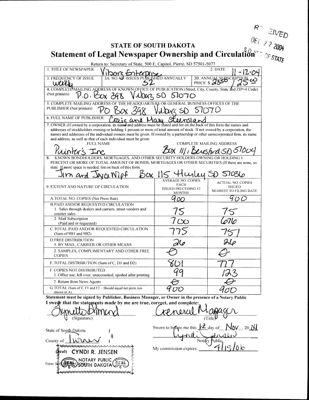 RECEIVED
DEC 22 2004
STATE OF SOUTH DAKOTA
Statement of Legal Newspaper Ownership and Circulation
Return to: Secretary of State, 500 E. Capitol, Pierre, SD 57501-5077
1. TITLE OF NEWSPAPER Viborg Enterprise 2. DATE 11-12-04
3. FREQUENCY OF ISSUE weekly 3A. NO. OF ISSUES PUBLISHED ANNUALLY 52 3B. ANNUAL SUBSCRIPTION PRICE
4. COMPLETE MAILING ADDRESS OF KNOWN OFFICE OF PUBLICATION (Street, City, County, State and ZIP+4 Code) (Not printers)
P.O. Box 248 Viborg, SD 57070
5. COMPLETE MAILING ADDRESS OF THE HEADQUARTERS OR GENERAL BUSINESS OFFICES OF THE PUBLISHER (Not printers)
PO Box 248 Viborg, SD 57070
6. FULL NAME OF PUBLISHER
7. OWNER (If owned by a corporation, its name and address must be stated and also on the back of this form the names and addresses of stockholders owning or holding 1 percent or more of total amount of stock. If not owned by a corporation, the names and addresses of the individual owners must be given. If owned by a partnership or other unincorporated firm, its name and address, as well as that of each individual must be given.
FULL NAME COMPLETE MAILING ADDRESS
Printer's Inc Box 111 Beresford SD 57004
8. KNOWN BONDHOLDERS, MORTGAGES, AND OTHER SECURITY HOLDERS OWNING OR HOLDING 1 PERCENT OR MORE OF TOTAL AMOUNT OF BONDS, MORTGAGES OR OTHER SECURITIES (If there are none, so state. If more space is needed, list on back of this form.
Box 115 Hurley SD 57036
9. EXTENT AND NATURE OF CIRCULATION AVERAGE NO. COPIES EACH ISSUE PRECEDING 12 MONTHS ACTUAL NO. COPIES ISSUED NEAREST TO FILING DATE
A. TOTAL NO. COPIES (Net Press Run) 900 900
B. PAID AND/OR REQUESTED CIRCULATION
1. Sales through dealers and carriers, street vendors and counter sales 75 75
2. Mail Subscription (Paid and or requested) 700 676
C. TOTAL PAID AND/OR REQUESTED CIRCULATION (Sum of 9B1 and 9B2) 775 751
D. FREE DISTRIBUTION
1. BY MAIL, CARRIER OR OTHER MEANS 26 26
2. SAMPLES, COMPLIMENTARY AND OTHER FREE COPIES 0 0
E. TOTAL DISTRIBUTION (Sum of C, D1 and D2) 801 777
F. COPIES NOT DISTRIBUTED
1. Office use, left over, unaccounted, spoiled after printing 99 123
2. Return from News Agents 0 0
G. TOTAL (Sum of E, F1 and F2 - Should equal net press run shown in A) 900 900
Statement must be signed by Publisher, Business Manager, or Owner in the presence of a Notary Public
I swear that the statements made by me are true, correct, and complete:
General Manager
(Signature) (Title)
State of South Dakota Sworn to before me this 12 day of Nov, 2004
County of Turner
CYNDI R. JENSEN
NOTARY PUBLIC
SOUTH DAKOTA
My commission expires: 4/15/06